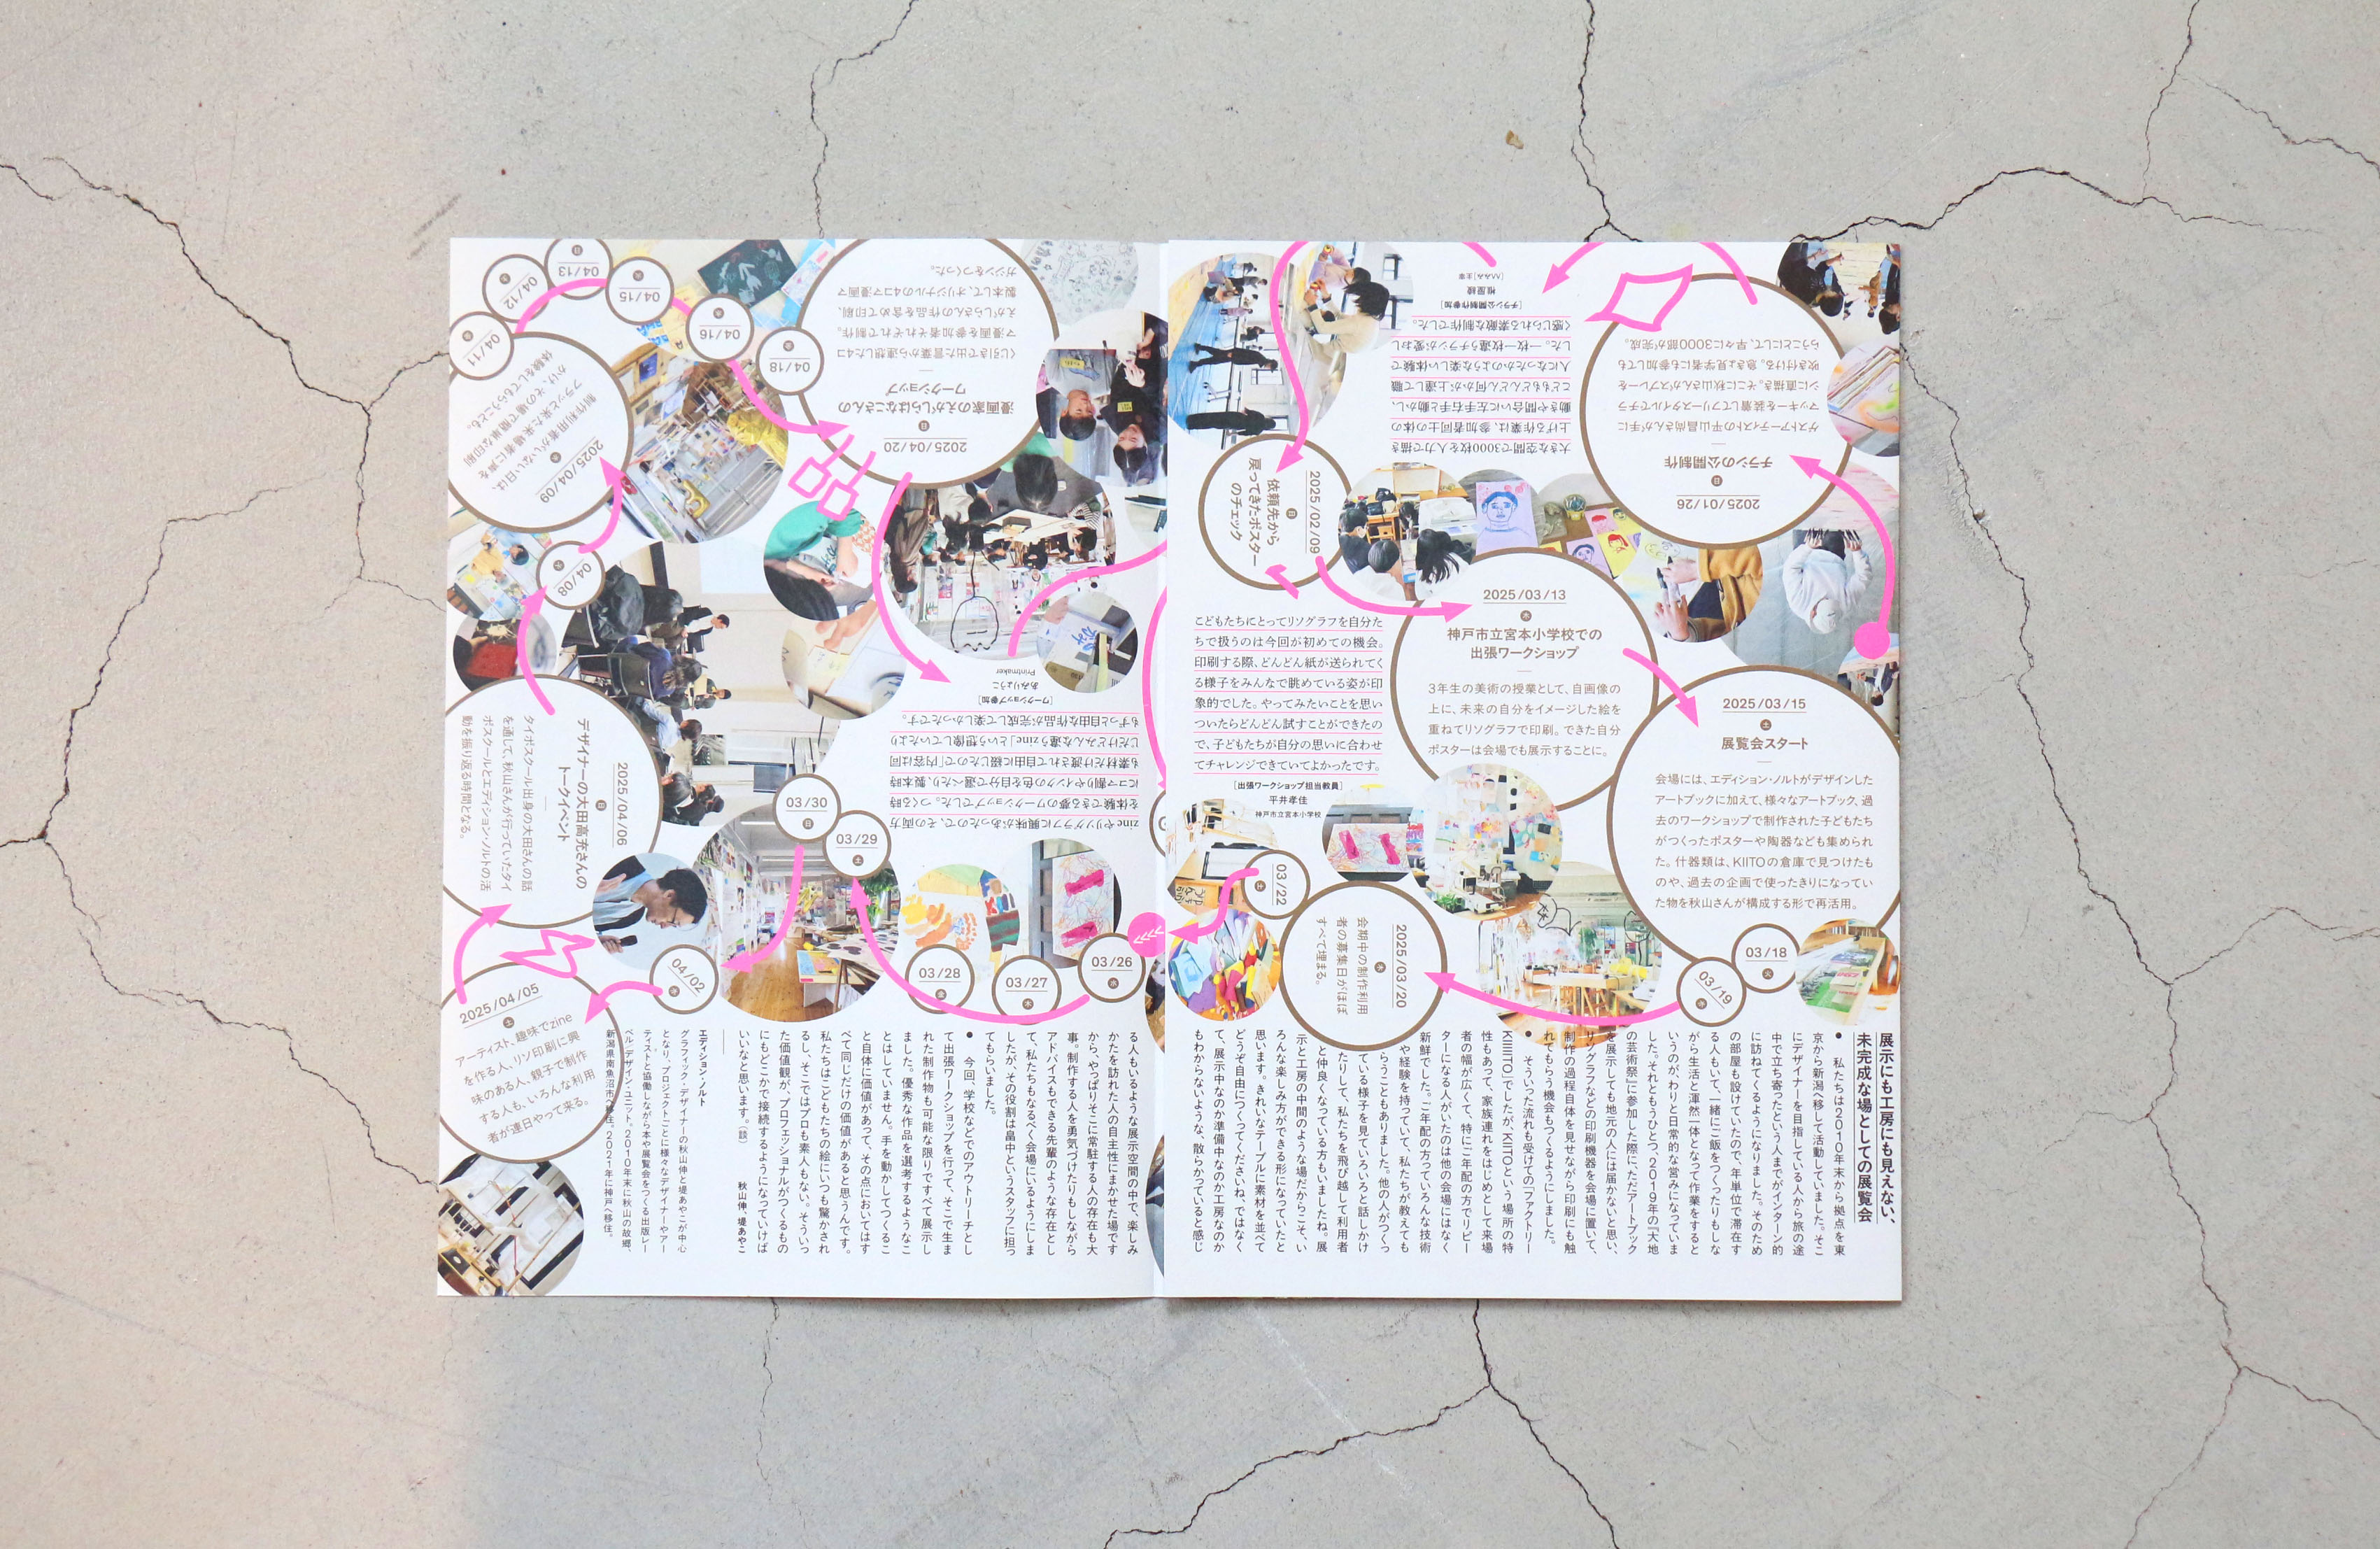 2025/01/26
日
チラシの公開制作
ゲストアーティストの平山昌尚さんが手に
マッキーを装着してフリースタイルでチラ
シに直描き。そこに秋山さんがスプレーを
吹き付ける。急きょ見学者にも参加しても
らうことにして、早々に3000部が完成。
大きな空間で3000枚を人力で描き
上げる作業は、参加者同士の体の
動きや間合いに左手右手と動かし、
こどもどんどん何かが上達して職
人になったかのような楽しい体験で
した。一枚一枚違うチラシが愛おし
く感じられる素敵な制作でした。
[チラシ公開制作参加]
2025/02/09
日
依頼先から
戻ってきたポスター
のチェック
2025/03/13
木
神戸市立宮本小学校での
出張ワークショップ
3年生の美術の授業として、自画像の
上に、未来の自分をイメージした絵を
重ねてリソグラフで印刷。できた自分
ポスターは会場でも展示することに。
こどもたちにとってリソグラフを自分た
ちで扱うのは今回が初めての機会。
印刷する際、どんどん紙が送られてく
る様子をみんなで眺めている姿が印
象的でした。やってみたいことを思い
ついたらどんどん試すことができたの
で、子どもたちが自分の思いに合わせ
てチャレンジできていてよかったです。
[出張ワークショップ担当教員]
平井孝佳
神戸市立宮本小学校
2025/03/15
土
展覧会スタート
会場には、エディション・ノルトがデザインした
アートブックに加えて、様々なアートブック、過
去のワークショップで制作された子どもたち
がつくったポスターや陶器なども集められ
た。什器類は、KIITOの倉庫で見つけたも
のや、過去の企画で使ったきりになってい
た物を秋山さんが構成する形で再活用。
03/18
火
03/19
水
2025/03/20
木
会期中の制作利用
者の募集日がほぼ
すべて埋まる。
03/22
土
03/26
水
03/27
木
03/28
金
03/29
土
03/30
日
04/02
水
2025/04/05
土
アーティスト、趣味でzine
を作る人、リソ印刷に興
味のある人、親子で制作
する人も、いろんな利用
者が連日やって来る。
2025/04/06
日
デザイナーの大田高充さんの
トークイベント
タイポスクール出身の大田さんの話
を通して、秋山さんが行っていたタイ
ポスクールとエディション・ノルトの活
動を振り返る時間となる。
04/08
火
2025/04/09
水
制作利用者がいない日は、
フラッと来た来場者に声を
かけ、その場で簡単な印刷
体験をしてもらうことも。
04/11
金
04/12
土
04/13
日
04/15
火
04/16
水
04/18
金
2025/04/20
日
漫画家のえがしらはなこさんの
ワークショップ
くじ引きで出た言葉から連想した4コ
マ漫画を参加者それぞれで制作。
えがしらさんの作品を含めて印刷、
製本して、オリジナルの4コマ漫画マ
ガジンをつくった。
zineやリソグラフに興味があったので、その両方
を体験できる夢のワークショップでした。つくる時
にコマ割りやインクの色を自分で選べたり、製本時
も素材だけ渡されて自由に綴じたので「内容は同
じだけどみんな違うzine」という想像していたより
もずっと自由な作品が完成して楽しかったです。
[ワークショップ参加]
あみりょうこ
Printmaker
展示にも工房にも見えない、
未完成な場としての展覧会
● 私たちは2010年末から拠点を東
京から新潟へ移して活動していました。そこ
にデザイナーを目指している人から旅の途
中で立ち寄ったという人までがインターン的
に訪ねてくるようになりました。そのため
の部屋も設けていたので、年単位で滞在す
る人もいて、一緒にご飯をつくったりもしな
がら生活と渾然一体となって作業をすると
いうのが、わりと日常的な営みになっていま
した。それともうひとつ、2019年の『大地
の芸術祭』に参加した際に、ただアートブック
を展示しても地元の人には届かないと思い、
リソグラフなどの印刷機器を会場に置いて、
制作の過程自体を見せながら印刷にも触
れてもらう機会もつくるようにしました。
● そういった流れも受けての「ファクトリー
KIIIIITO」でしたが、KIITOという場所の特
性もあって、家族連れをはじめとして来場
者の幅が広くて、特にご年配の方でリピー
ターになる人がいたのは他の会場にはなく
新鮮でした。ご年配の方っていろんな技術
や経験を持っていて、私たちが教えても
らうこともありました。他の人がつくっ
ている様子を見ていろいろと話しかけ
たりして、私たちを飛び越して利用者
と仲良くなっている方もいましたね。展
示と工房の中間のような場だからこそ、い
ろんな楽しみ方ができる形になっていたと
思います。きれいなテーブルに素材を並べて
どうぞ自由につくってくださいね、ではなく
て、展示中なのか準備中なのか工房なのか
もわからないような、散らかっていると感じ
る人もいるような展示空間の中で、楽しみ
かたを訪れた人の自主性にまかせた場です
から、やっぱりそこに常駐する人の存在も大
事。制作する人を勇気づけたりもしながら
アドバイスもできる先輩のような存在とし
て、私たちもなるべく会場にいるようにしま
したが、その役割は畠中というスタッフに担っ
てもらいました。
● 今回、学校などでのアウトリーチとし
て出張ワークショップを行って、そこで生ま
れた制作物も可能な限りですべて展示し
ました。優秀な作品を選考するようなこ
とはしていません。手を動かしてつくるこ
と自体に価値があって、その点においてはす
べて同じだけの価値があると思うんです。
私たちはこどもたちの絵にいつも驚かされ
るし、そこではプロも素人もない。そういっ
た価値観が、プロフェッショナルがつくるもの
にもどこかで接続するようになっていけば
いいなと思います。(談)
秋山伸、堤あやこ
エディション・ノルト
グラフィック・デザイナーの秋山伸と堤あやこが中心
となり、プロジェクトごとに様々なデザイナーやアー
ティストと協働しながら本や展覧会をつくる出版レー
ベル/デザイン・ユニット。2010年末に秋山の故郷、
新潟県南魚沼市へ移住。2021年に神戸へ移住。